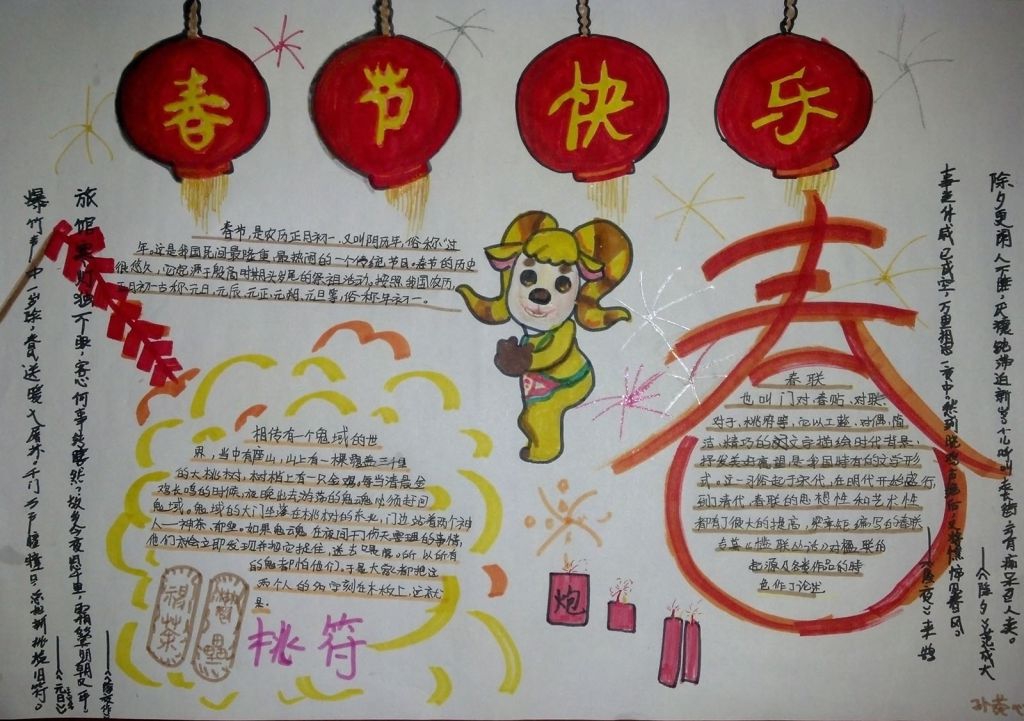 春节快乐
春节,是农历正月初一,又叫阴历年,俗称"过
年"。这是我国民间最隆重、最热闹的一个传统节日。春节的历史
很悠久,它起源于殷商时期年头岁尾的祭祖活动。按照我国农历,
正月初一古称元日、元辰、元正、元朔、元旦等,俗称年初一。
相传有一个鬼域的世
界,当中有座山,山上有一棵覆盖三千里
的大桃树,树梢上有一只金鸡。每当清晨金
鸡长鸣的时候,夜晚出去游荡的鬼魂必须赶回
鬼域。鬼域的大门坐落在桃树的东北,门边站着两个神
人——神荼、郁垒。如果鬼魂在夜间干了伤天害理的事情,
他们就会立即发现并把它捉住,送去喂虎。所以所有
的鬼都怕他们,于是大家都把这
两个人的名字刻在木板上,这就
是:
桃符
神荼
春联
也叫门对、春贴、对联、
对子、桃符等,它以工整、对偶、简
洁、精巧的文字描绘时代背景,
抒发美好愿望,是我国特有的文学形
式。这一习俗起于宋代,在明代开始盛行,
到了清代,春联的思想性和艺术性
都有了很大的提高,梁章矩编写的春联
专著《槛联丛话》对楹联的
起源及各类作品的特
色作了论述
炮
旅馆寒灯独不眠,客心何事转凄然?故乡今夜思千里,霜鬓明朝又一年。
爆竹声中一岁除,春风送暖入屠苏。千门万户瞳瞳日,总把新桃换旧符。
——《元日》
事关休戚已成空,万里相思一夜中。愁到晓鸡声绝后,又将憔悴见春风。
——《除夜》来鹄
除夕更阑人不睡,厌禳钝滞迎新岁。小儿呼叫走长街,云有痴呆召人卖。
——《除夕》范成大